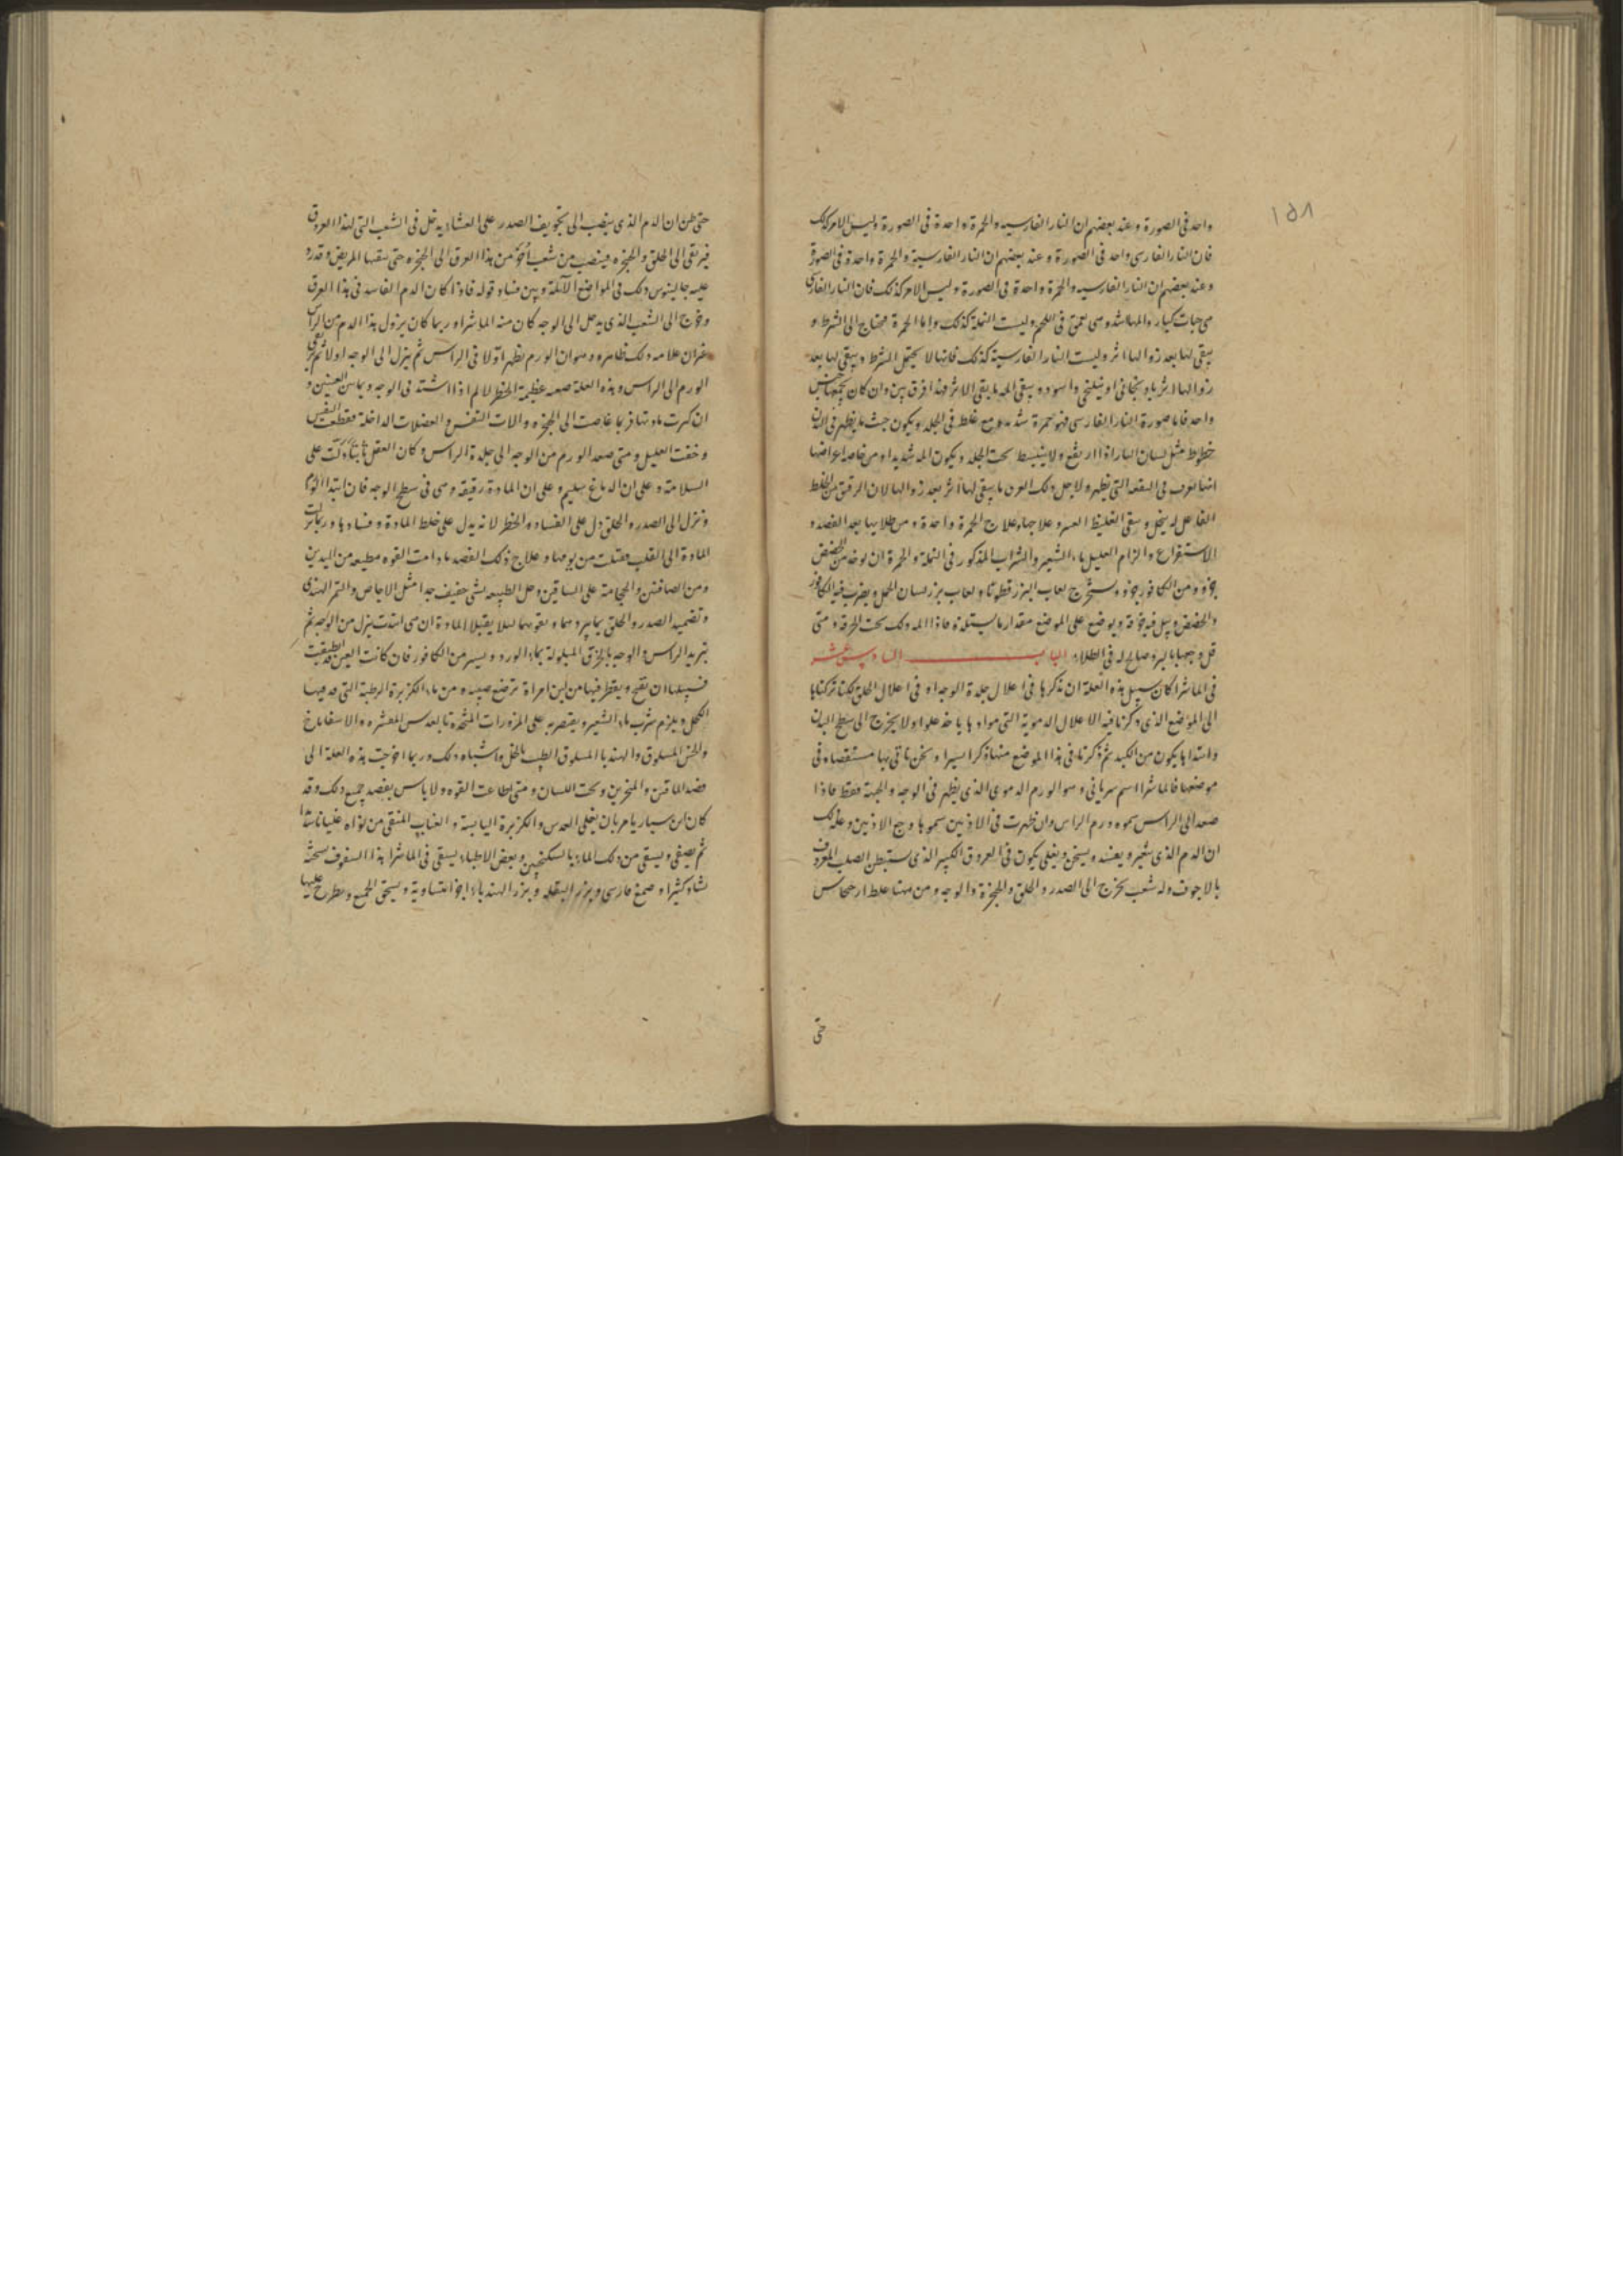 ١٥٨
واحد فى الصورة وعند بعضهم ان النار الفارسيه والجمرة واحدة فى الصورة وليس الامر كذلك
فان النار الفارسى واحد فى الصورة وعند بعضهم ان النار الفارسية والجمرة واحدة فى الصورة
وعند بعضهم ان النار الفارسيه والجمرة واحدة فى الصورة وليس الامر كذلك فان النار الفارسى
هى حبات كبار والمها اشد وهى تعمق فى اللحم وليست النملة كذلك واما الجمرة فيحتاج الى الشرط و
يبقى لها بعد زوالها اثر وليست النار الفارسية كذلك فانها لا يحتمل الشرط ويبقى لها بعد
زوالها اثر واسود ويبقى الاثر فهذا فرق بين وان كان
واحد فاما صورة النار الفارسى فهو حمرة شديده مع غلظ فى الجلد ويكون حيث ما يظهر فى البدن
خطوط مثل لسان النار اذا ارتفع ولا ينبسط تحت الجلد ويكون الم شديد او من خاصه اعراضها
انها تعرف فى البقعه التى تظهر ولاجل ذلك العرق ما يبقى لها اثر بعد زوالها لان الرقيق من الخلط
الفاعل له يتحلل ويبقى الغليظ وعلاجها وعلاج الجمرة واحدة ومن طلايها بعد الفصد و
الاستفراغ والزام العليل ماء الشعير والشراب المذكور فى النملة والجمرة ان يوخذ من الحضض
جزو ومن الكافور جزو ويستخرج لعاب البزر قطونا ولعاب بزر لسان الحمل ويضرب فيه الكافور
والحضض ويبل فيه خرقة ويوضع على الموضع مقدار ما يستلذه فاذا المه ذلك تحت الخرقة ومتى
فى الطلاء الباب السادس عشر
فى الماشرا كان سبيل هذه العلة ان نذكرها فى اعلال جلدة الوجه او فى اعلال الحلق لكنا تركناها
الى الموضع الذى ذكرنا فيه الاعلال الدموية التى موادها ياخذ علوا ولا يخرج الى سطح البدن
وابتداها يكون من الكبد ثم ذكرنا فى هذا الموضع منها ذكرا يسيرا ونحن ناتى بها مستقصاه فى
موضعها فالماشرا اسم سريانى وهو الورم الدموى الذى يظهر فى الوجه والجبهة فقط فاذا
صعد الى الراس سموه ورم الراس وان ظهرت فى الاذنين سموها وجع الاذنين وعلة ذلك
ان الدم الذى يتغير ويفسد ويسخن ويغلى يكون فى العروق الكبير الذى يستبطن الصلب المعروف
بالاجوف وله شعب تخرج الى الصدر والحلق والحنجرة والوجه ومن ههنا غلط ارخجاس
حتى
حتى ظن ان الدم الذى ينصب الى تجويف الصدر على الغشا يدخل فى الشعب التى لهذا العروق
فيرتقى الى الحلق والحنجره فينصب من شعب اخر من هذا العرق الى الحنجره حتى المريض وقد رد
عليه جالينوس ذلك فى المواضع الآلمة وبين فساد قوله فاذا كان الدم الفاسد فى هذا العرق
وخرج الى الشعب الذى يدخل الى الوجه كان منه الماشرا وربما كان نزول هذا الدم من الراس
غير ان علامه ذلك ظاهره وهو ان الورم يظهر اولا فى الراس ثم ينزل الى الوجه اولا ثم يرتقى
الورم الى الراس وهذه العلة صعبه عظيمة الخطر لالم اذا اشتد فى الوجه وما بين العينين و
ان كثرت مادتها فربما غاصت الى الحنجره والات التنفس والعضلات الداخلة فقطعت النفس
وخنقت العليل ومتى صعد الورم من الوجه الى جلدة الراس وكان العقل ثابتا دلت على
السلامة وعلى ان الدماغ سليم وعلى ان المادة رقيقه وهى فى سطح الوجه فان ابتدا الورم
ونزل الى الصدر والحلق دل على الفساد والخطر لانه يدل على غلظ المادة وفسادها وربما نزلت
المادة الى القلب فقتلت من يومها وعلاج ذلك الفصد ما دامت القوه مطيعه من اليدين
ومن الصافنين والحجامة على الساقين وحل الطبيعه بشى خفيف جدا مثل الاجاص والتمر الهندى
وتضميد الصدر والحلق بما يبردهما ويقويهما ليلا يقبلا المادة ان هى ابتدت ينزل من الوجه ثم
تبريد الراس والوجه بالخرق المبلولة بماء الورد ويسير من الكافور فان كانت العين قد انطبقت
فسبيلها ان تفتح ويقطر فيها من لبن امراة ترضع صبيه ومن ماء الكزبرة الرطبة التى قد فيها
الكحل ويلزم شرب ماء الشعير ويقتصر به على المزورات المتخذة بالعدس المقشره والاسفاناخ
والخس المسلوق والهندبا المسلوق المطيب بالخل واشباه ذلك وربما احوجت هذه العلة الى
فصد الماقين والمنخرين وتحت اللسان ومتى طاعت القوه ولا باس بفصد جميع ذلك وقد
كان ابن سيار يامر بان يغلى العدس والكزبرة اليابسة والعناب المنقى من نواه غليانا شديدا
ثم يصفى ويسقى من ذلك الماء بالسكنجبين وبعض الاطباء يسقى فى الماشرا هذا السفوف نسخته
نشا وكثيرا وصمغ فارسى وبزر البقلة وبزر الهندباء اجزا متساوية ويسحق الجميع ويطرح عليها